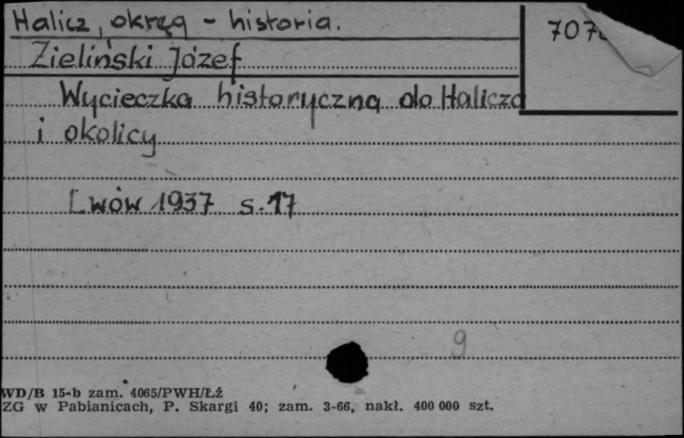 Halicz, okręg - historia.
707
Zieliński Józef
Wycieczka historyczna do Halicza
i okolicy
Lwów 1937 s. 17
9
WD/B 15-b zam. 4065/PWH/Łź
ZG w Pabianicach, P. Skargi 40; zam. 3-66, nakł. 400 000 szt.